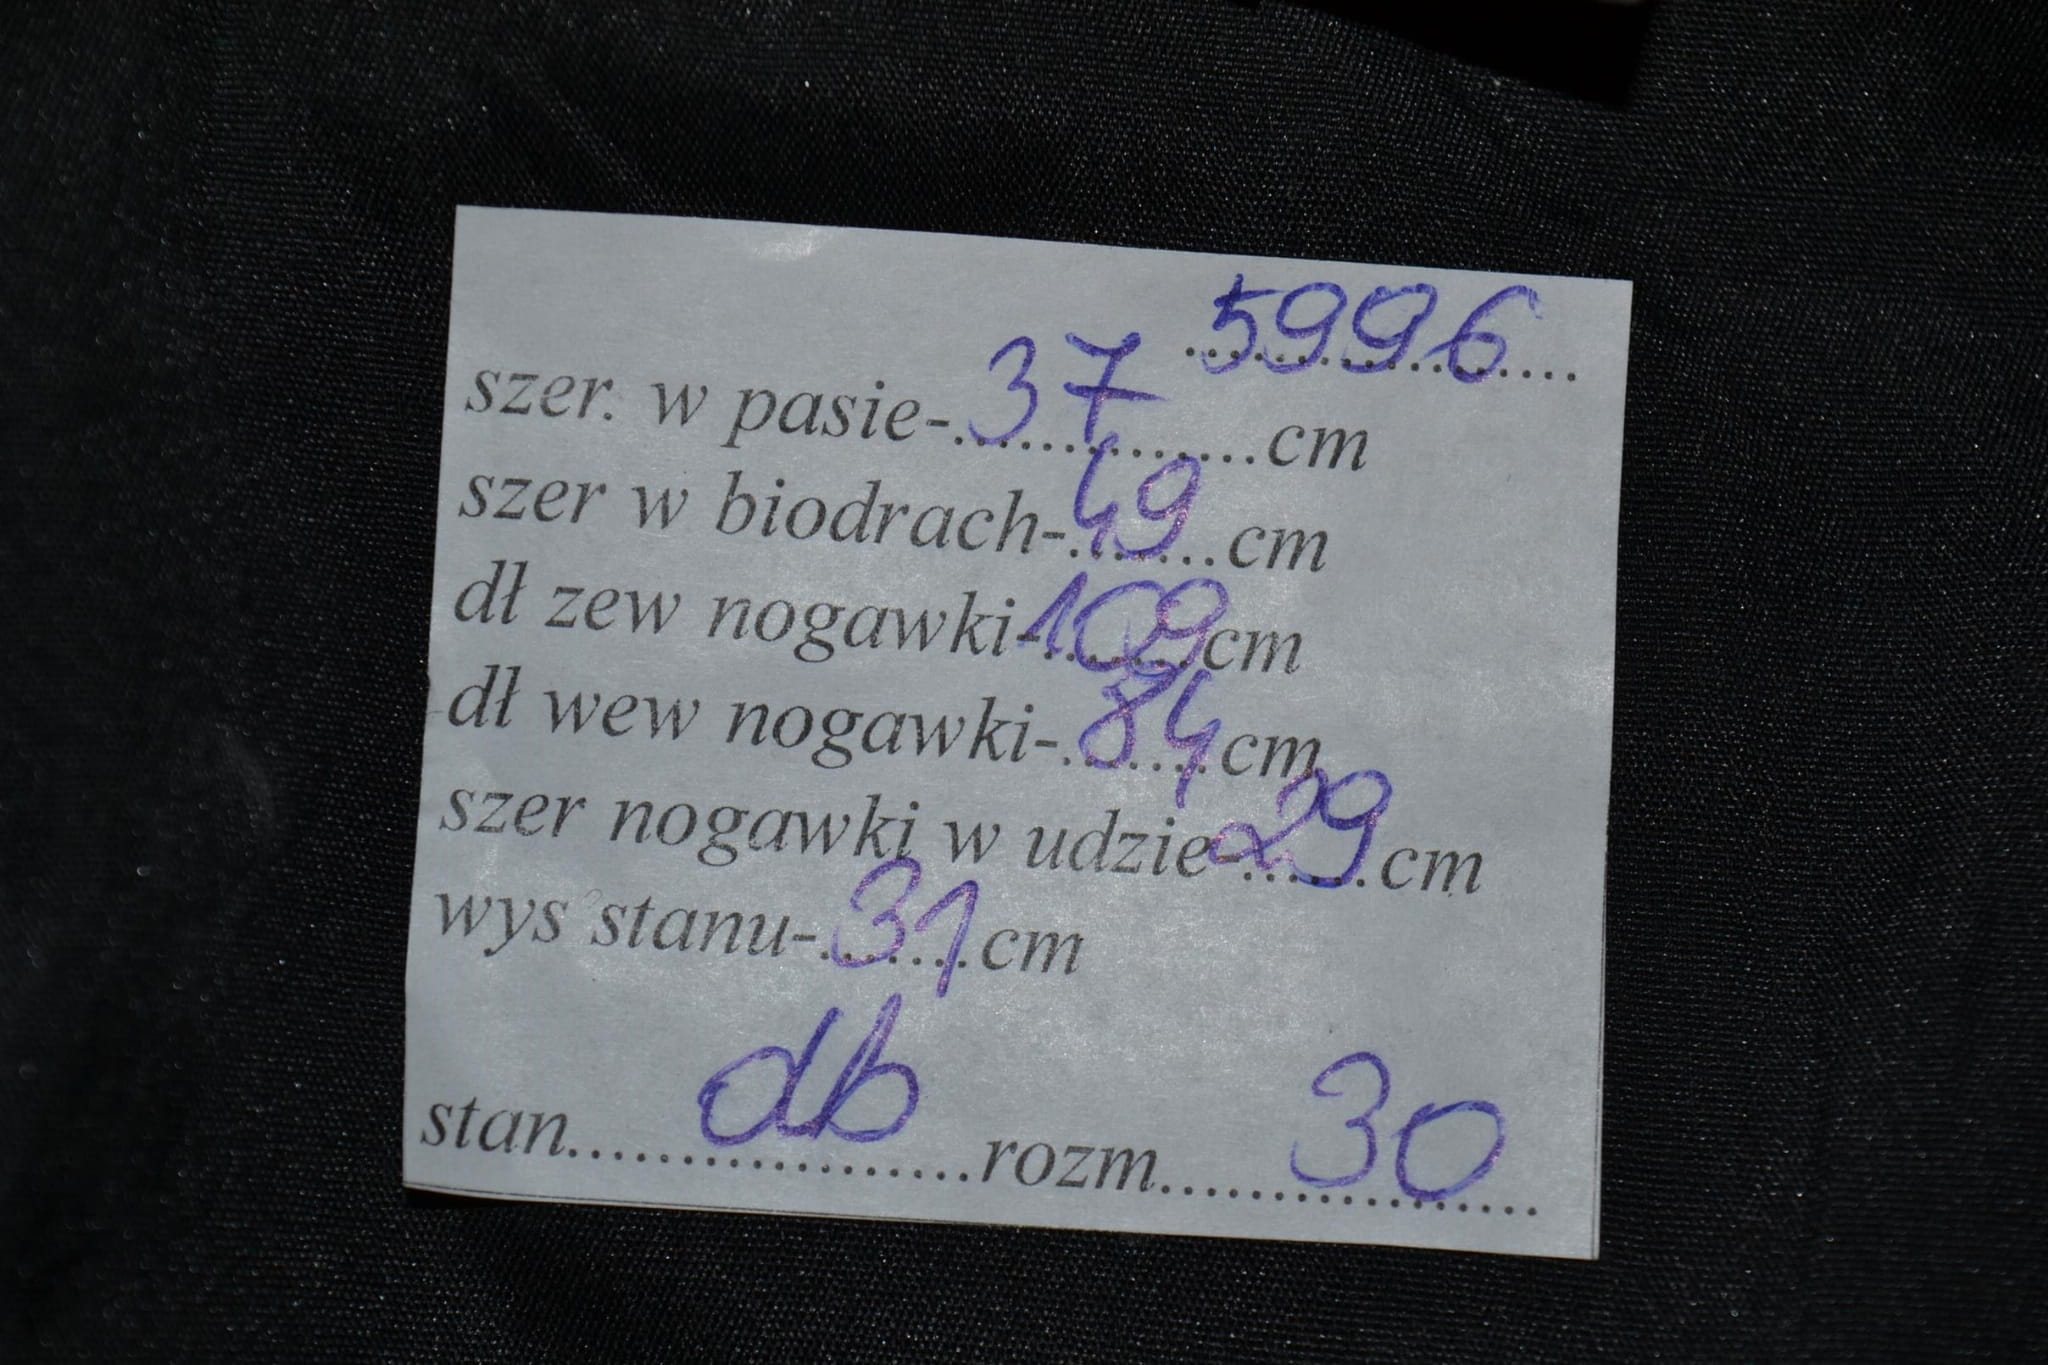 5996
szer. w pasie-37cm
szer w biodrach-49cm
dł zew nogawki-109cm
dł wew nogawki-84cm
szer nogawki w udzie-29cm
wys stanu-31cm
stan db rozm 30